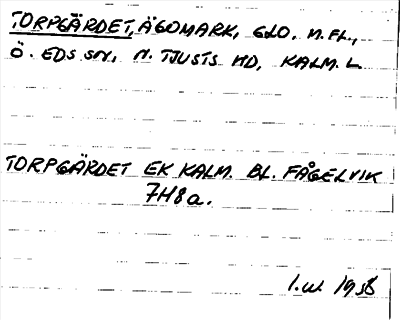 TORPGÄRDET, ÄGOMARK, GLO. M.FL.,
Ö. EDS SN, N. TJUSTS HD, KALM. L.
TORPGÄRDET EK KALM. BL. FÅGELVIK
7H8a.
1938